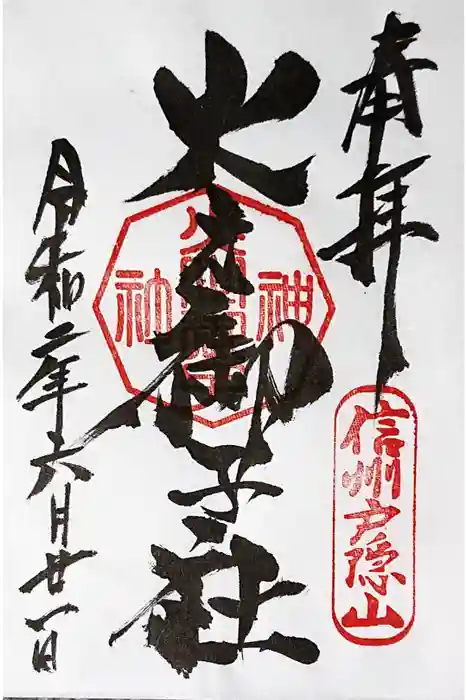 奉拝
信州戸隠山
火之御子社
神社
令和二年六月廿一日